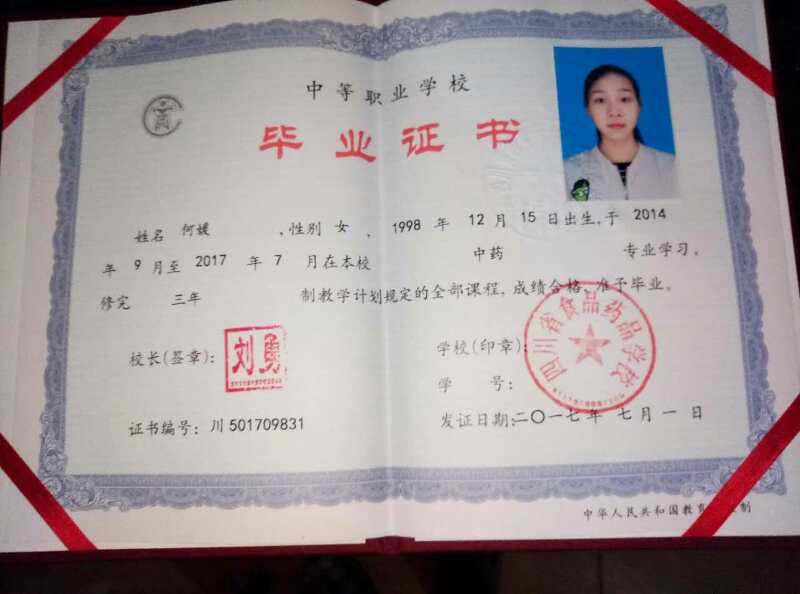 中等职业学校
毕业证书
姓名 何媛 ,性别 女 , 1998 年 12 月 15 日出生,于 2014
年 9 月至 2017 年 7 月在本校 中药 专业学习,
修完 三年 制教学计划规定的全部课程,成绩合格,准予毕业。
校长(签章): 刘勇
学校(印章): 四川省食品药品学校
学 号:
证书编号: 川 501709831
发证日期:二〇一七年 七月 一日
中华人民共和国教育 制